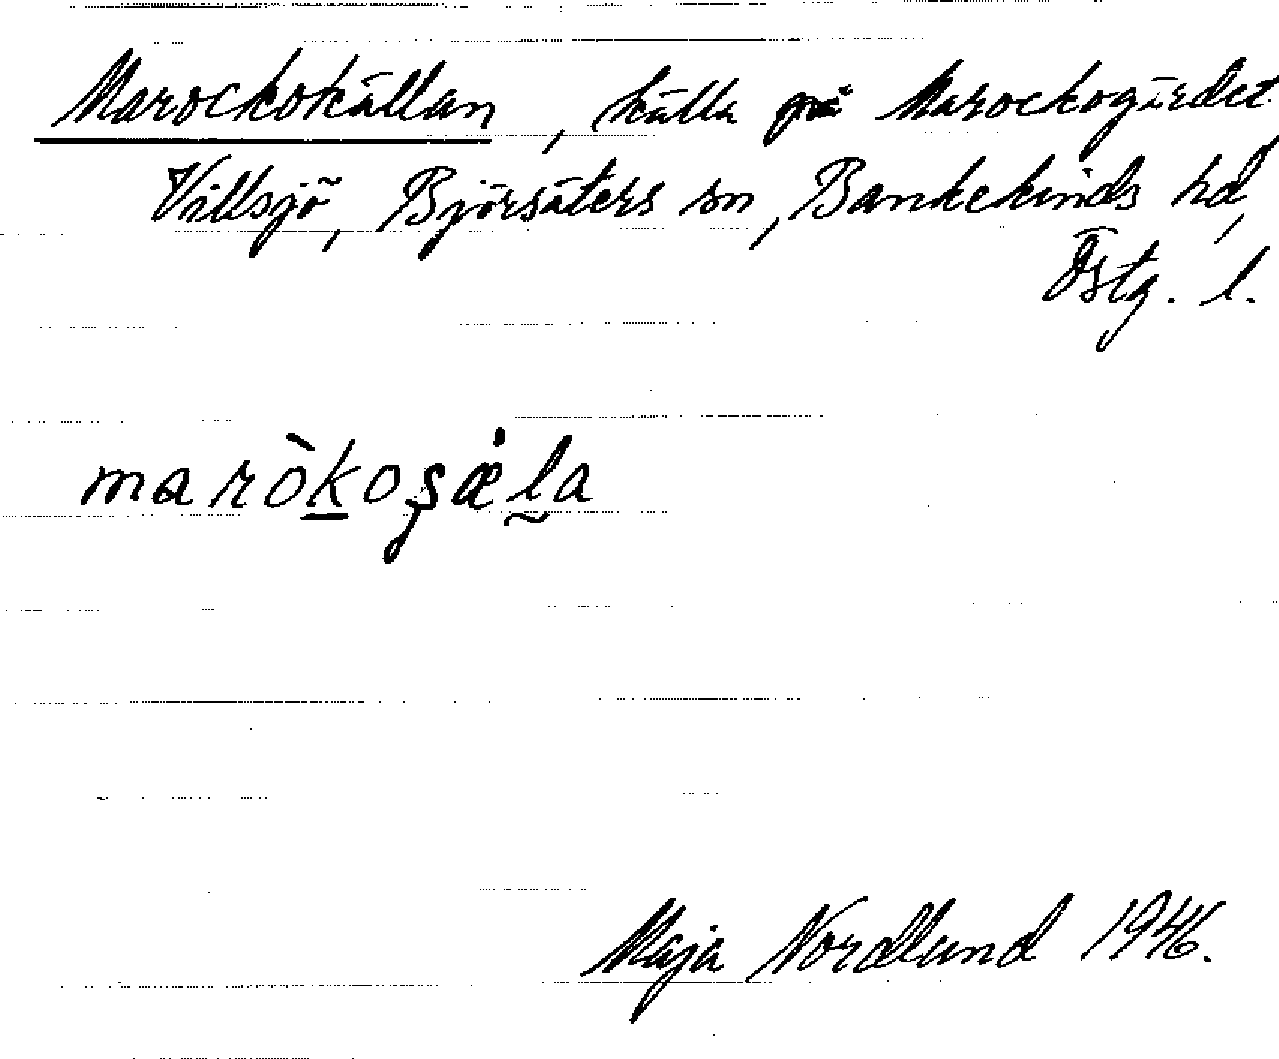 Marockokällan, källa på Marockogärdet
Villsjö, Björsäters sn, Bankekinds hd,
Östg. l.
maròkoʂæla
Maja Nordlund 1946.